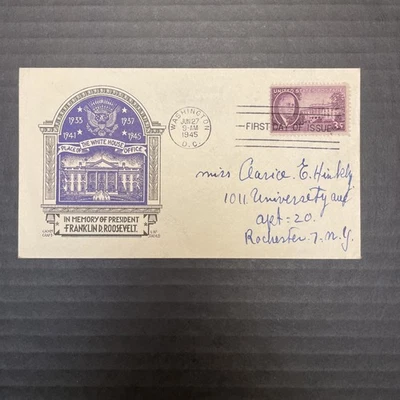 1933 1937
1941 1945
THE WHITE HOUSE
PLACE OF OFFICE
IN MEMORY OF PRESIDENT
FRANKLIN D. ROOSEVELT.
WASHINGTON
JUN 27
9-AM
1945
D.C.
UNITED STATES
FIRST DAY OF ISSUE
3¢
Miss Clarice E. Hinkley
1011 University ave
apt-20.
Rochester 7. N.Y.